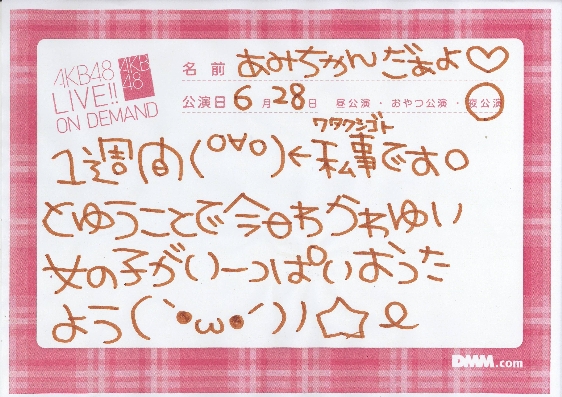 AKB48
LIVE!!
ON DEMAND
AKB
48
名前 あみちゃんだぁよ♡
公演日 6月28日 昼公演・おやつ公演・夜公演
ワタクシゴト
1週間(°∀°)←私事です。
とゆうことで今日もかわゆい
女の子がいーっぱいおった
よう(`●ω●´)ﾉ☆
DMM.com